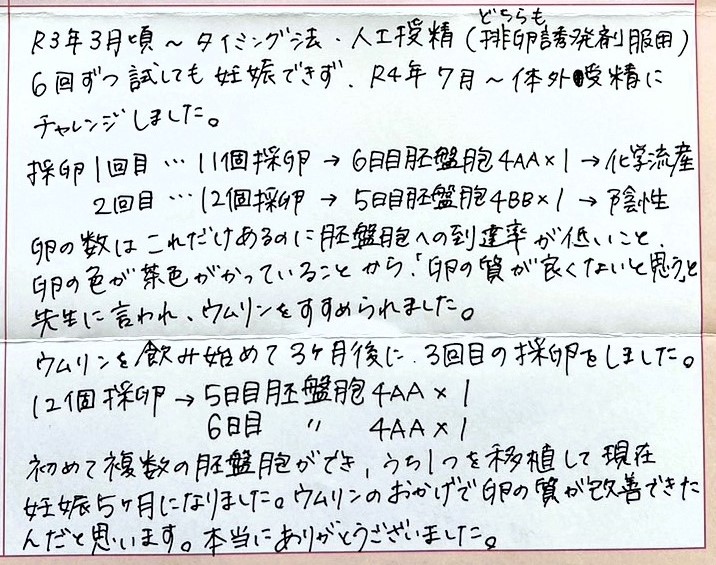 R3年3月頃～タイミング法・人工授精(排卵誘発剤服用)
どちらも
6回ずつ試しても妊娠できず、R4年7月～体外受精に
チャレンジしました。
採卵1回目…11個採卵→6日目胚盤胞4AA×1→化学流産
2回目…12個採卵→5日目胚盤胞4BB×1→陰性
卵の数はこれだけあるのに胚盤胞への到達率が低いこと、
卵の色が茶色がかっていることから、「卵の質が良くないと思う」と
先生に言われ、ウムリンをすすめられました。
ウムリンを飲み始めて3ヶ月後に、3回目の採卵をしました。
12個採卵→5日目胚盤胞4AA×1
6日目 〃 4AA×1
初めて複数の胚盤胞ができ、うち1つを移植して現在
妊娠5ヶ月になりました。ウムリンのおかげで卵の質が改善できた
んだと思います。本当にありがとうございました。